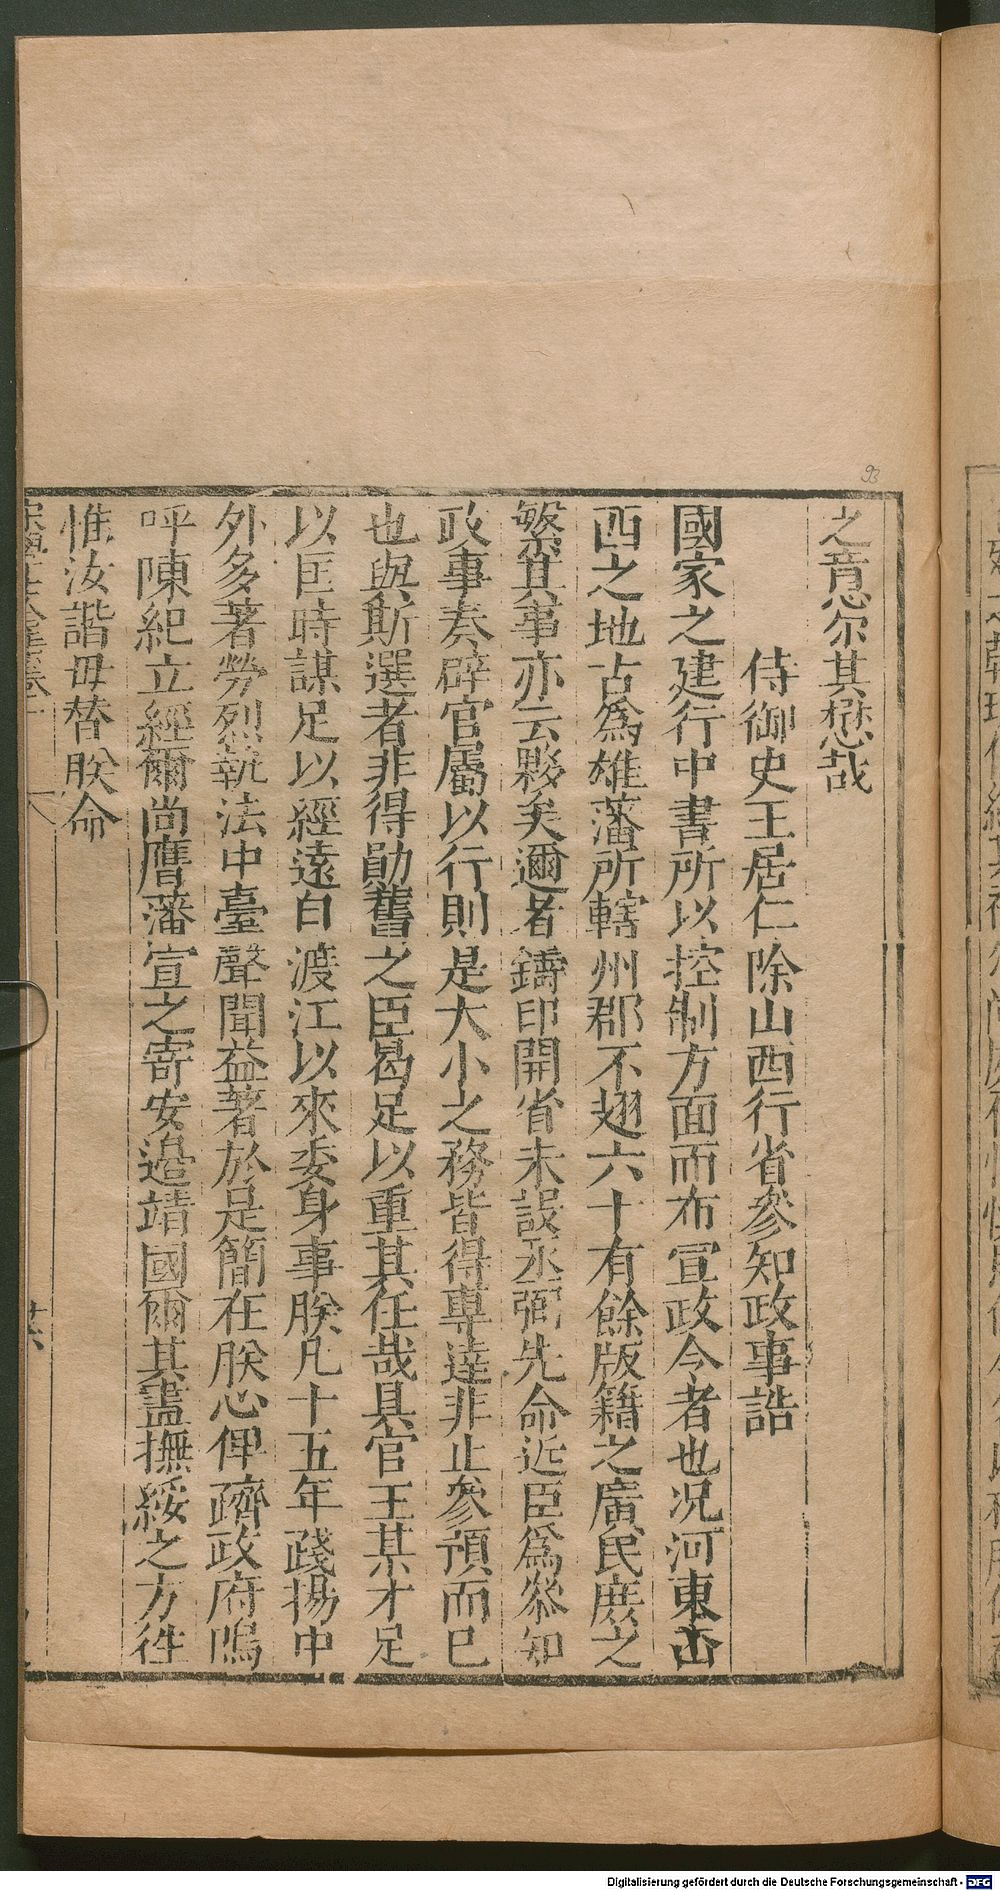 之意尔其懋哉
侍御史王居仁除山西行省參知政事誥
國家之建行中書所以控制方面而布宣政令者也况河東山
西之地古爲雄藩所轄州郡不翅六十有餘版籍之廣民庶之
繁其事亦云夥矣邇者鑄印開省未設丞弼先命近臣爲叅知
政事奏辟官屬以行則是大小之務皆得專達非止參預而已
也與斯選者非得勛舊之臣曷足以重其任哉具官王某才足
以匡時謀足以經遠自渡江以來委身事朕凡十五年踐揚中
外多著勞烈執法中臺聲聞益著於是簡在朕心俾躋政府嗚
呼陳紀立經爾尚膺藩宣之寄安邉靖國爾其盡撫綏之方徃
惟汝諧毋替朕命
93
Digitalisierung gefördert durch die Deutsche Forschungsgemeinschaft - DFG